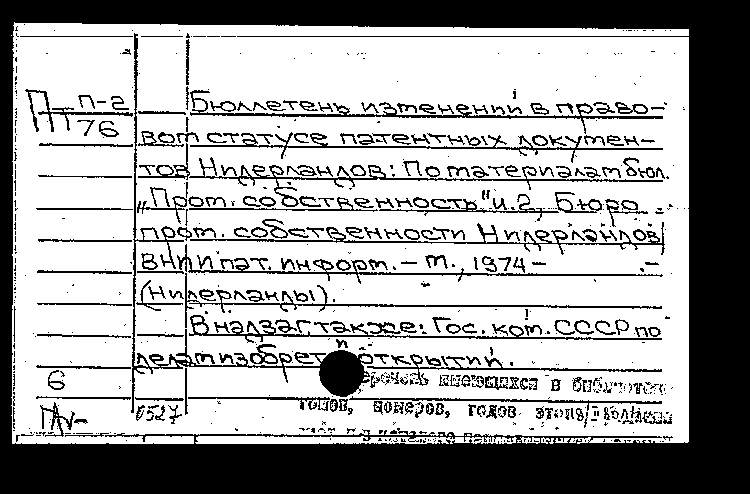 П П-2
76
Бюллетень изменений в право-
вом статусе патентных докумен-
тов Нидерландов: По материалам бюл.
"Пром. собственность" и.2, Бюро
пром. собственности Нидерландов/
ВНИИ пат. информ. – М., 1974 – . –
(Нидерланды).
В надзаг. также: Гос. ком. СССР по
делам изобрет. и открытий.
6
имеющихся в библиотеке
томов, номеров, годов этого
0527